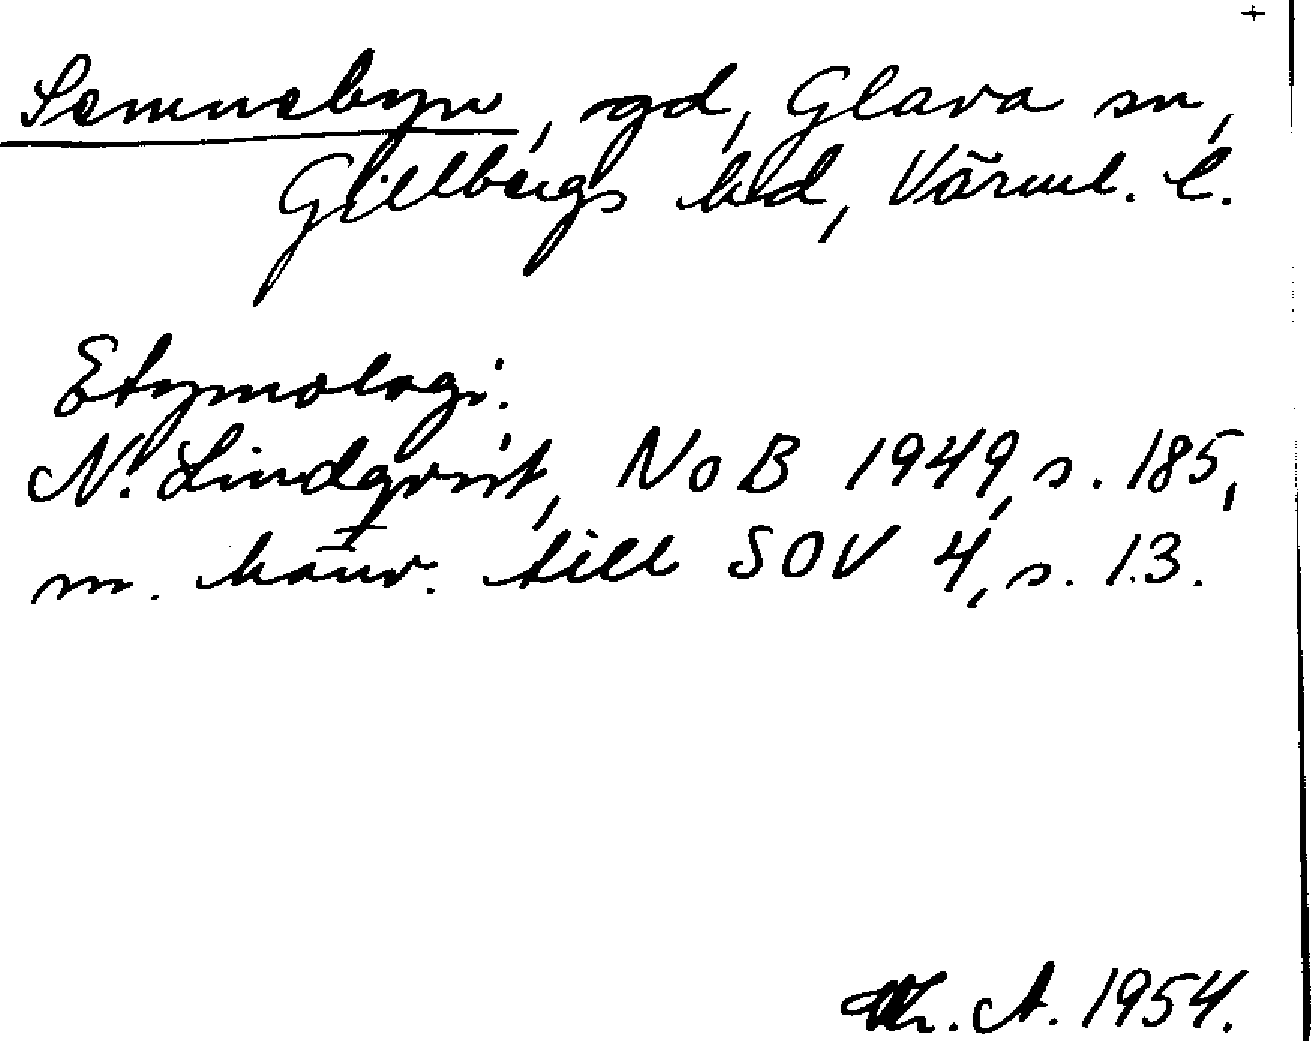 +
Semnebyn, gd, Glava sn,
Gillbergs hd, Värml. l.
Etymologi:
N. Lindqvist, NoB 1949, s. 185,
m. hänv. till SOV 4, s. 13.
Th. A. 1954.